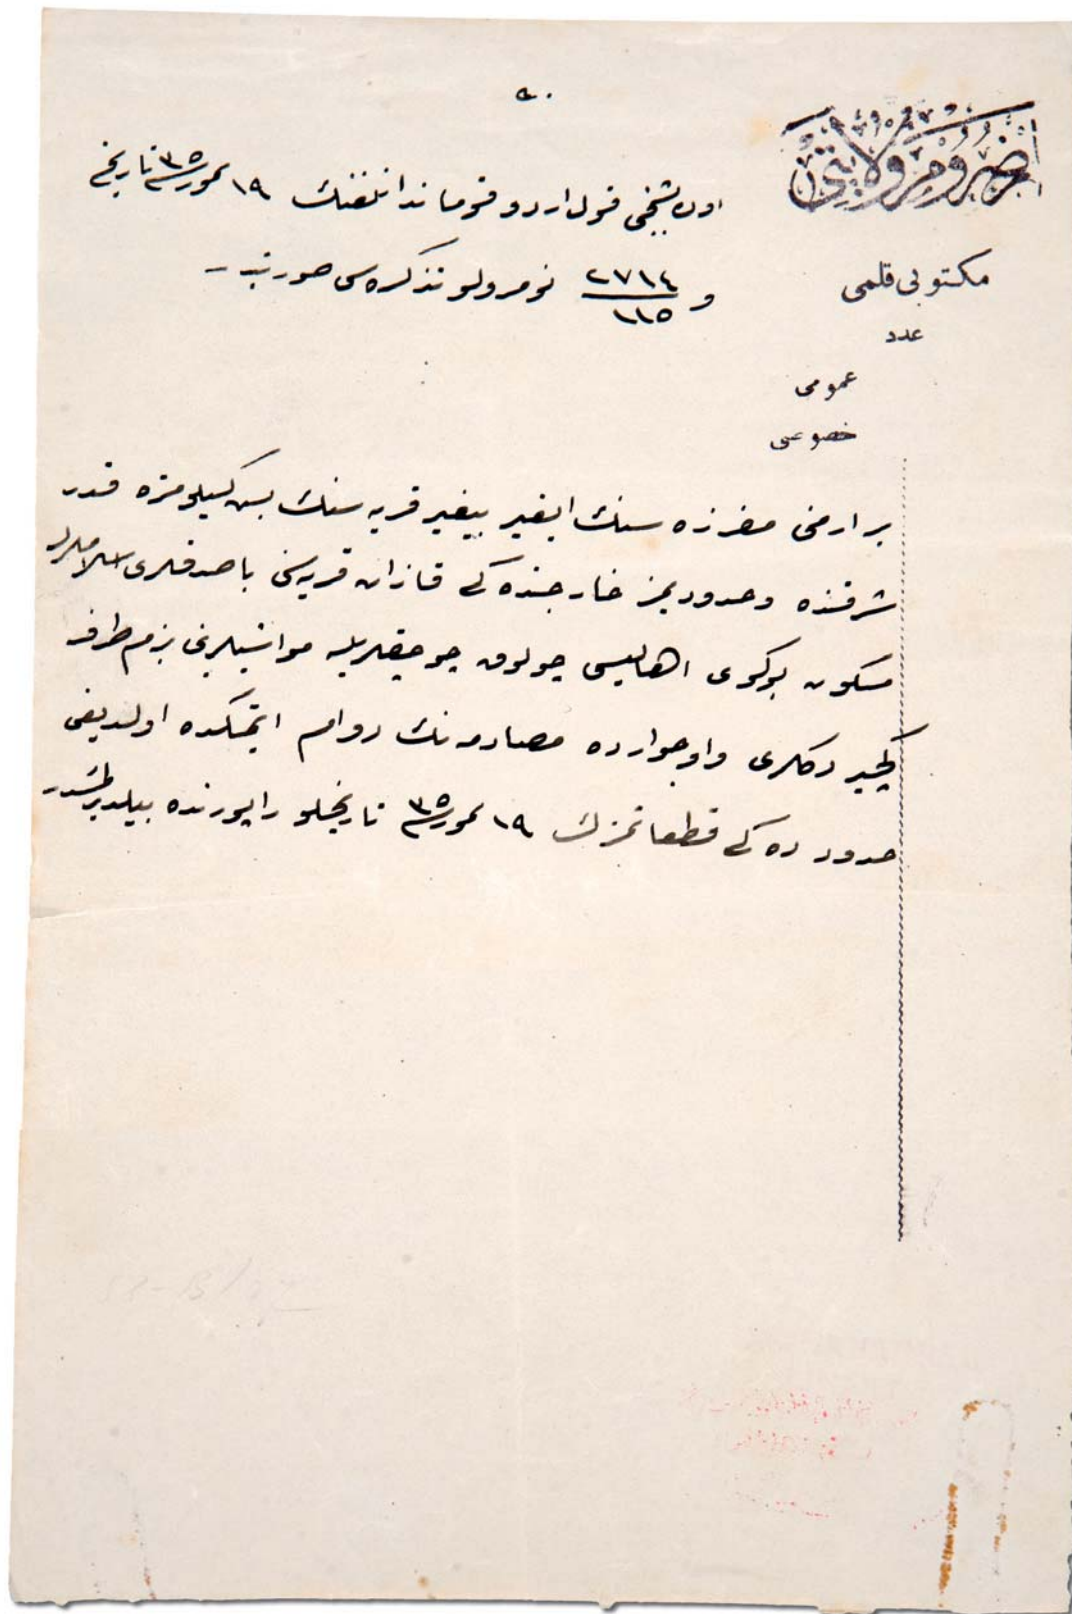 ٤٠
ارضروم ولايتى
مكتوبى قلمى
عدد
عمومى
خصوصى
اون بشنجى قول اردو قومانداﻧﻠﻐﻨﻚ ١٩ تموز ٣٥ تاريخ
و ٢٧١٤/١١٥ نومرولو تذكره سى صورتيدر
بر ارمنى مفرزه سنك قريه سنك بش كيلومتره قدر
شرقنده و حدوديمز خارجنده كى قازان قريه سنى باصدقلرى اسلاملرله
مسكون بو كوى اهاليسى چولوق چوجقلريله مواشيلرينى بزم طرفه
كچيردكلرى و او جوارده مصادمه نك دوام ايتمكده اولديغى
حدودده كى قطعاتمزك ١٩ تموز ٣٥ تاريخلو راپورنده بيلديرلمشدر